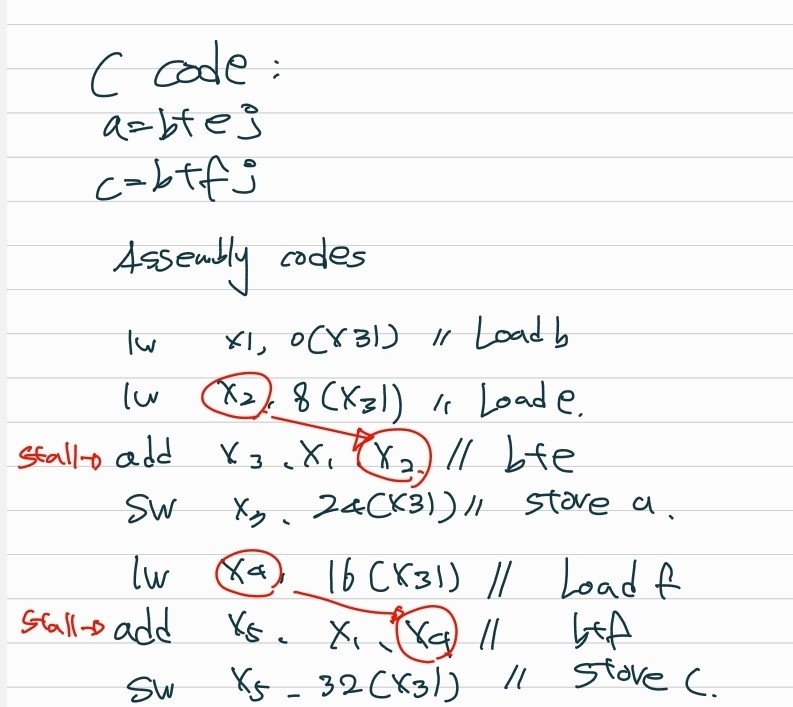 C code:
a=b+e;
c=b+f;
Assembly codes
lw x1, 0(x31) // Load b
lw x2, 8(x31) // Load e.
stall→ add x3, x1, x2. // b+e
sw x3, 24(x31) // store a.
lw x4, 16(x31) // Load f
stall→ add x5, x1, x4 // b+f
sw x5, 32(x31) // store c.